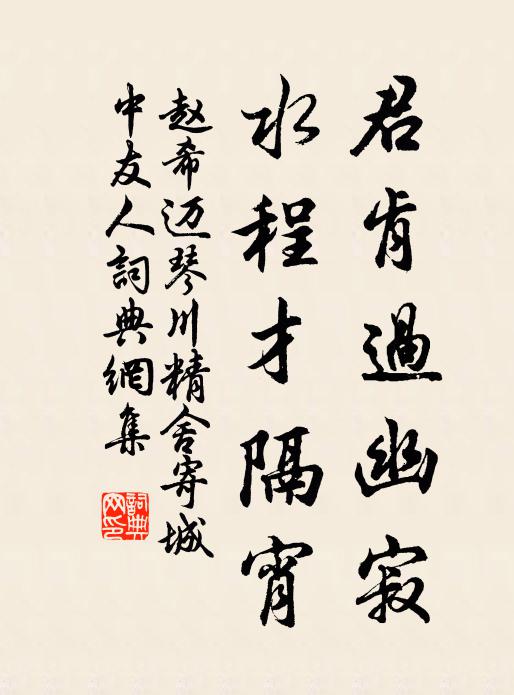 君肯過幽寂
水程才隔宵
赵希迈琴川精舍寄城
中友人詞典網集
詞典
网印